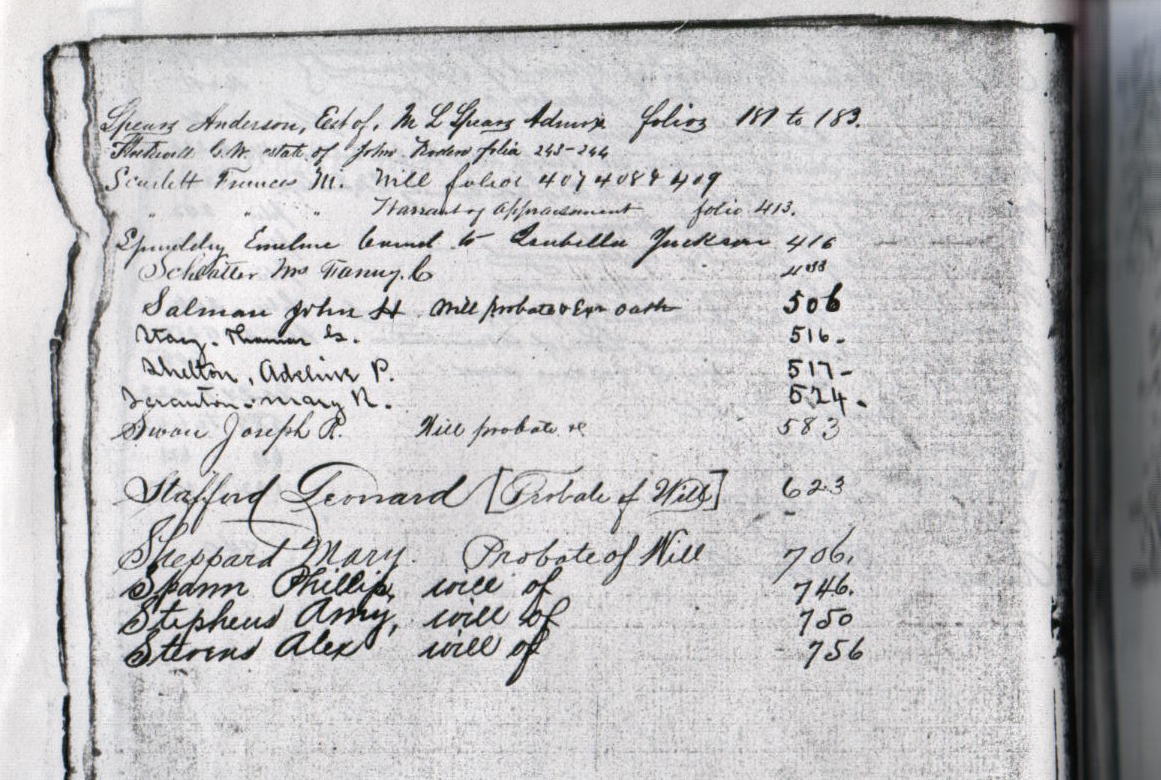 Spears Anderson, Est of, M L Spears Admrx folios 181 to 183.
C. W. estate of John folio 243-244
Scarlett Francis M. Will folios 407 408 & 409
" " " Warrant of Appraisement folio 413.
Emeline bound to Isabella Jackson 416
Mrs Fanny. C 433
Salman John H Will probate & Exr oath 506
Stacy. Thomas G. 516-
Shelton, Adeline P. 517-
Scranton. Mary R. 524.
Swan Joseph R. Will probate 583
Stafford Leonard [Probate of Will] 623
Sheppard Mary. Probate of Will 706.
Spann Phillip, will of 746.
Stephens Amy, will of 750
Stevens Alex will of 756